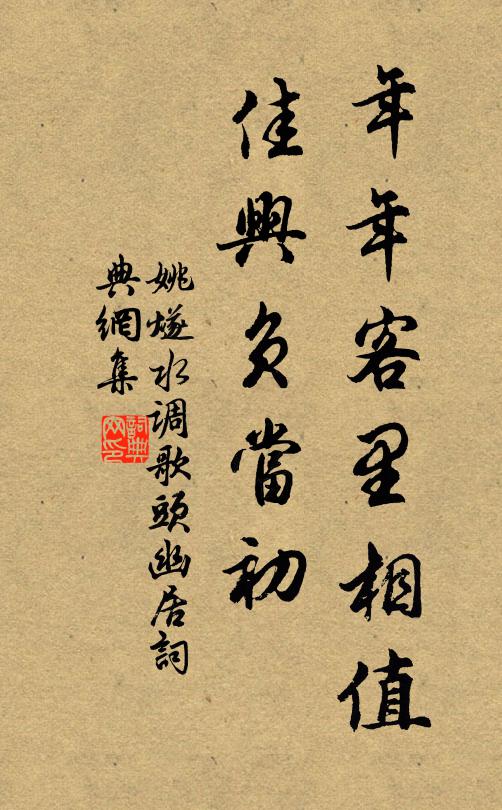 年年客里相值
佳興負當初
姚燧水调歌頭幽居詞
典網集
詞典網印